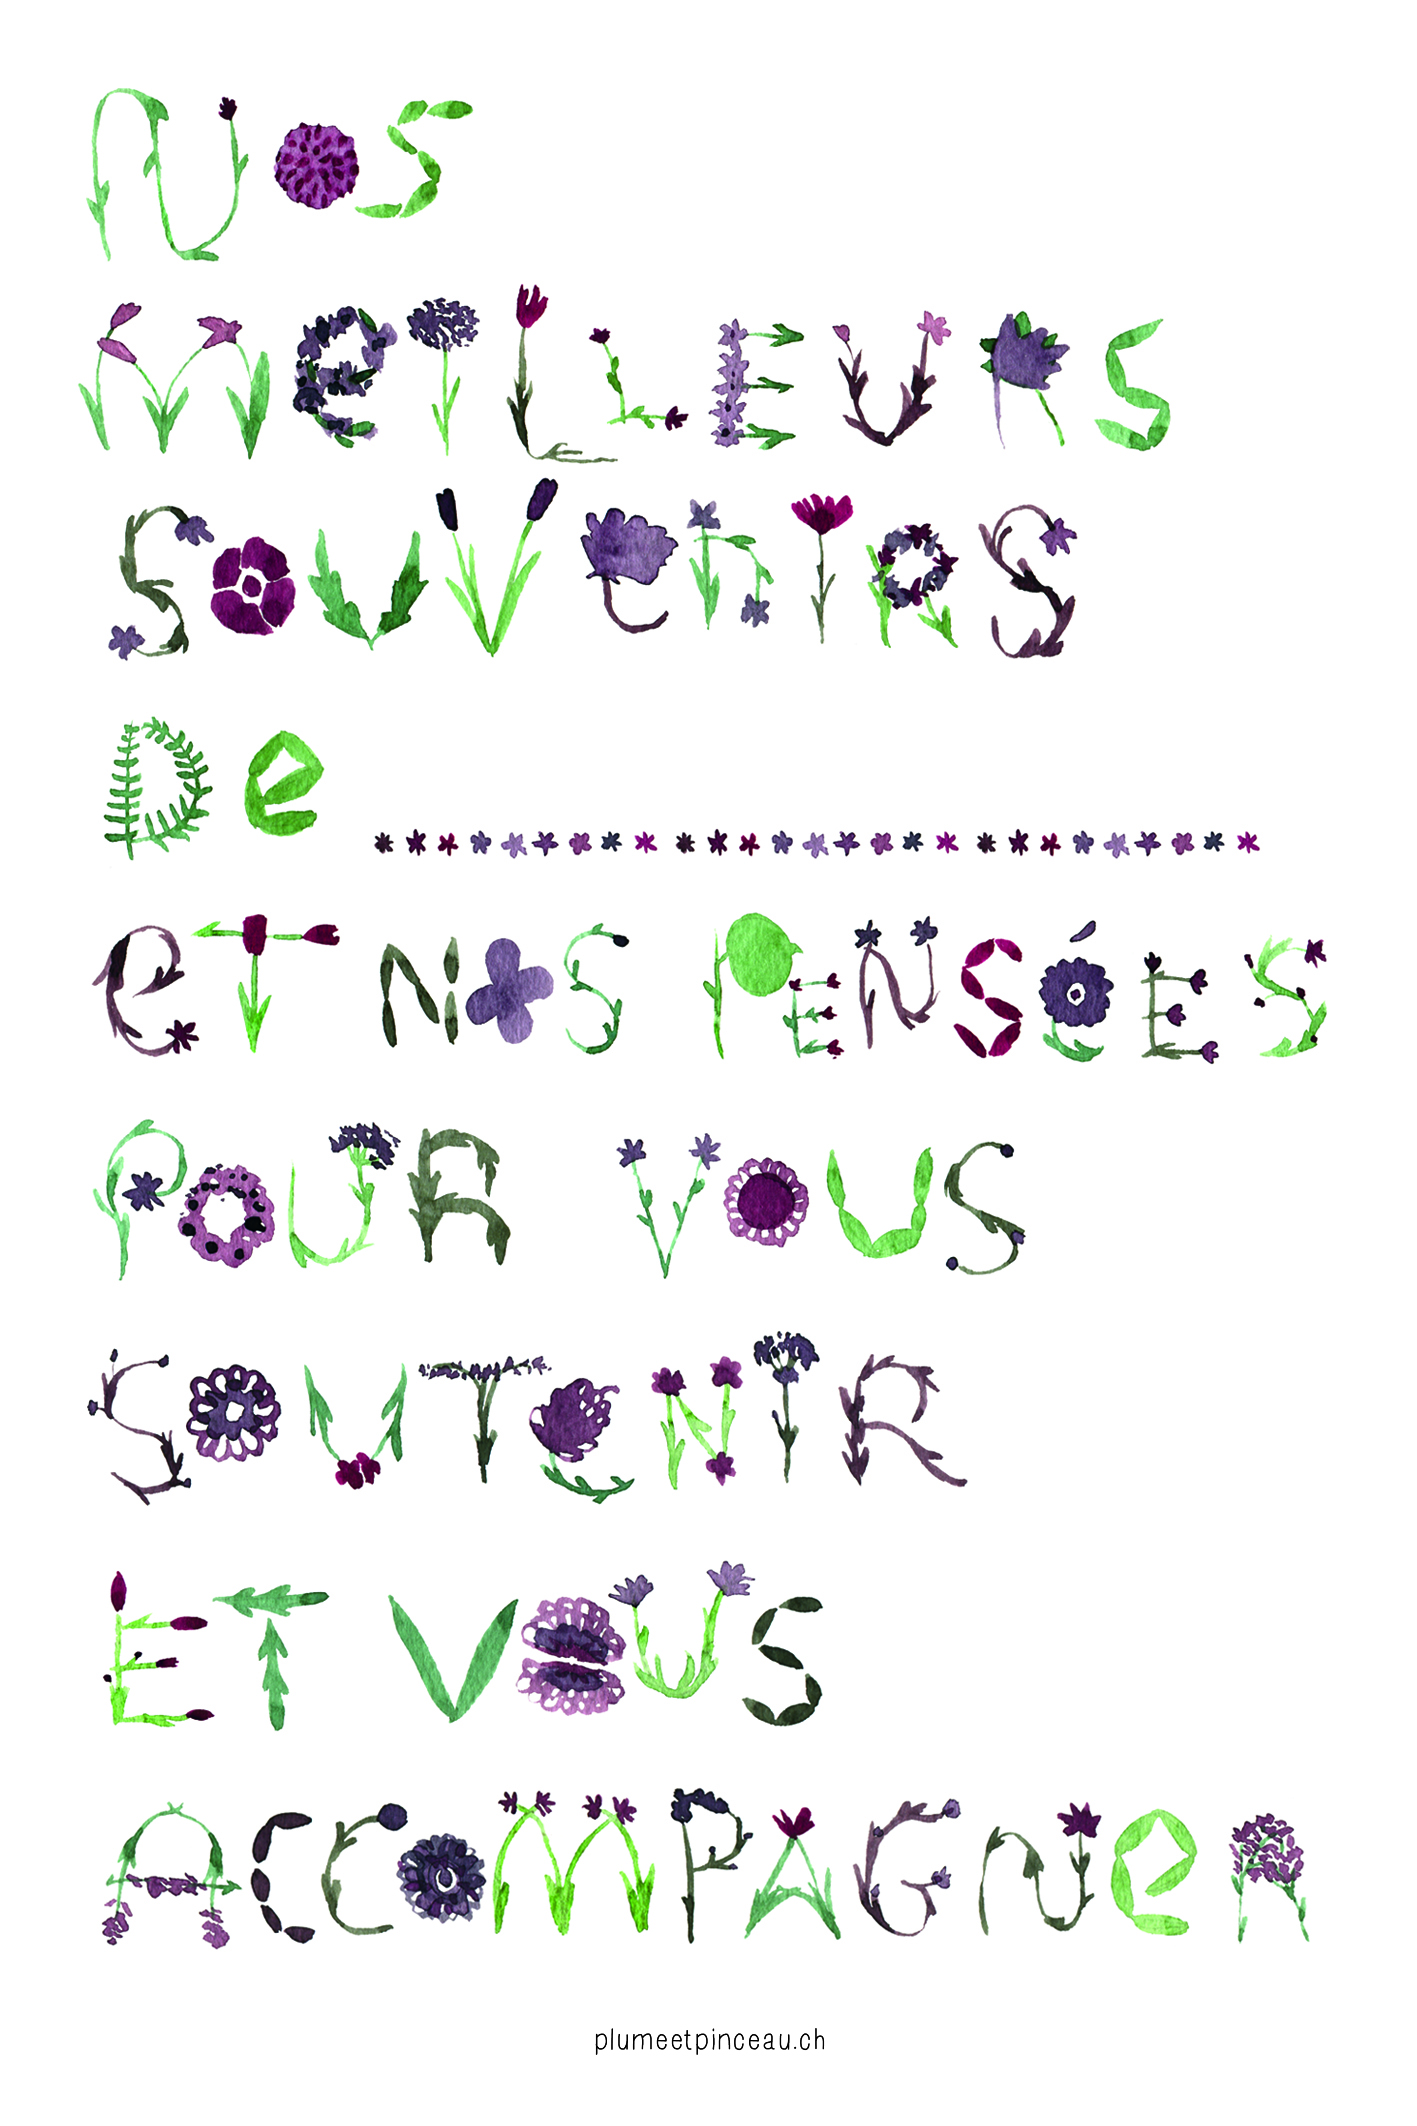 NOS
MEILLEURS
SOUVENIRS
DE
ET NOS PENSÉES
POUR VOUS
SOUTENIR
ET VOUS
ACCOMPAGNER
plumeetpinceau.ch